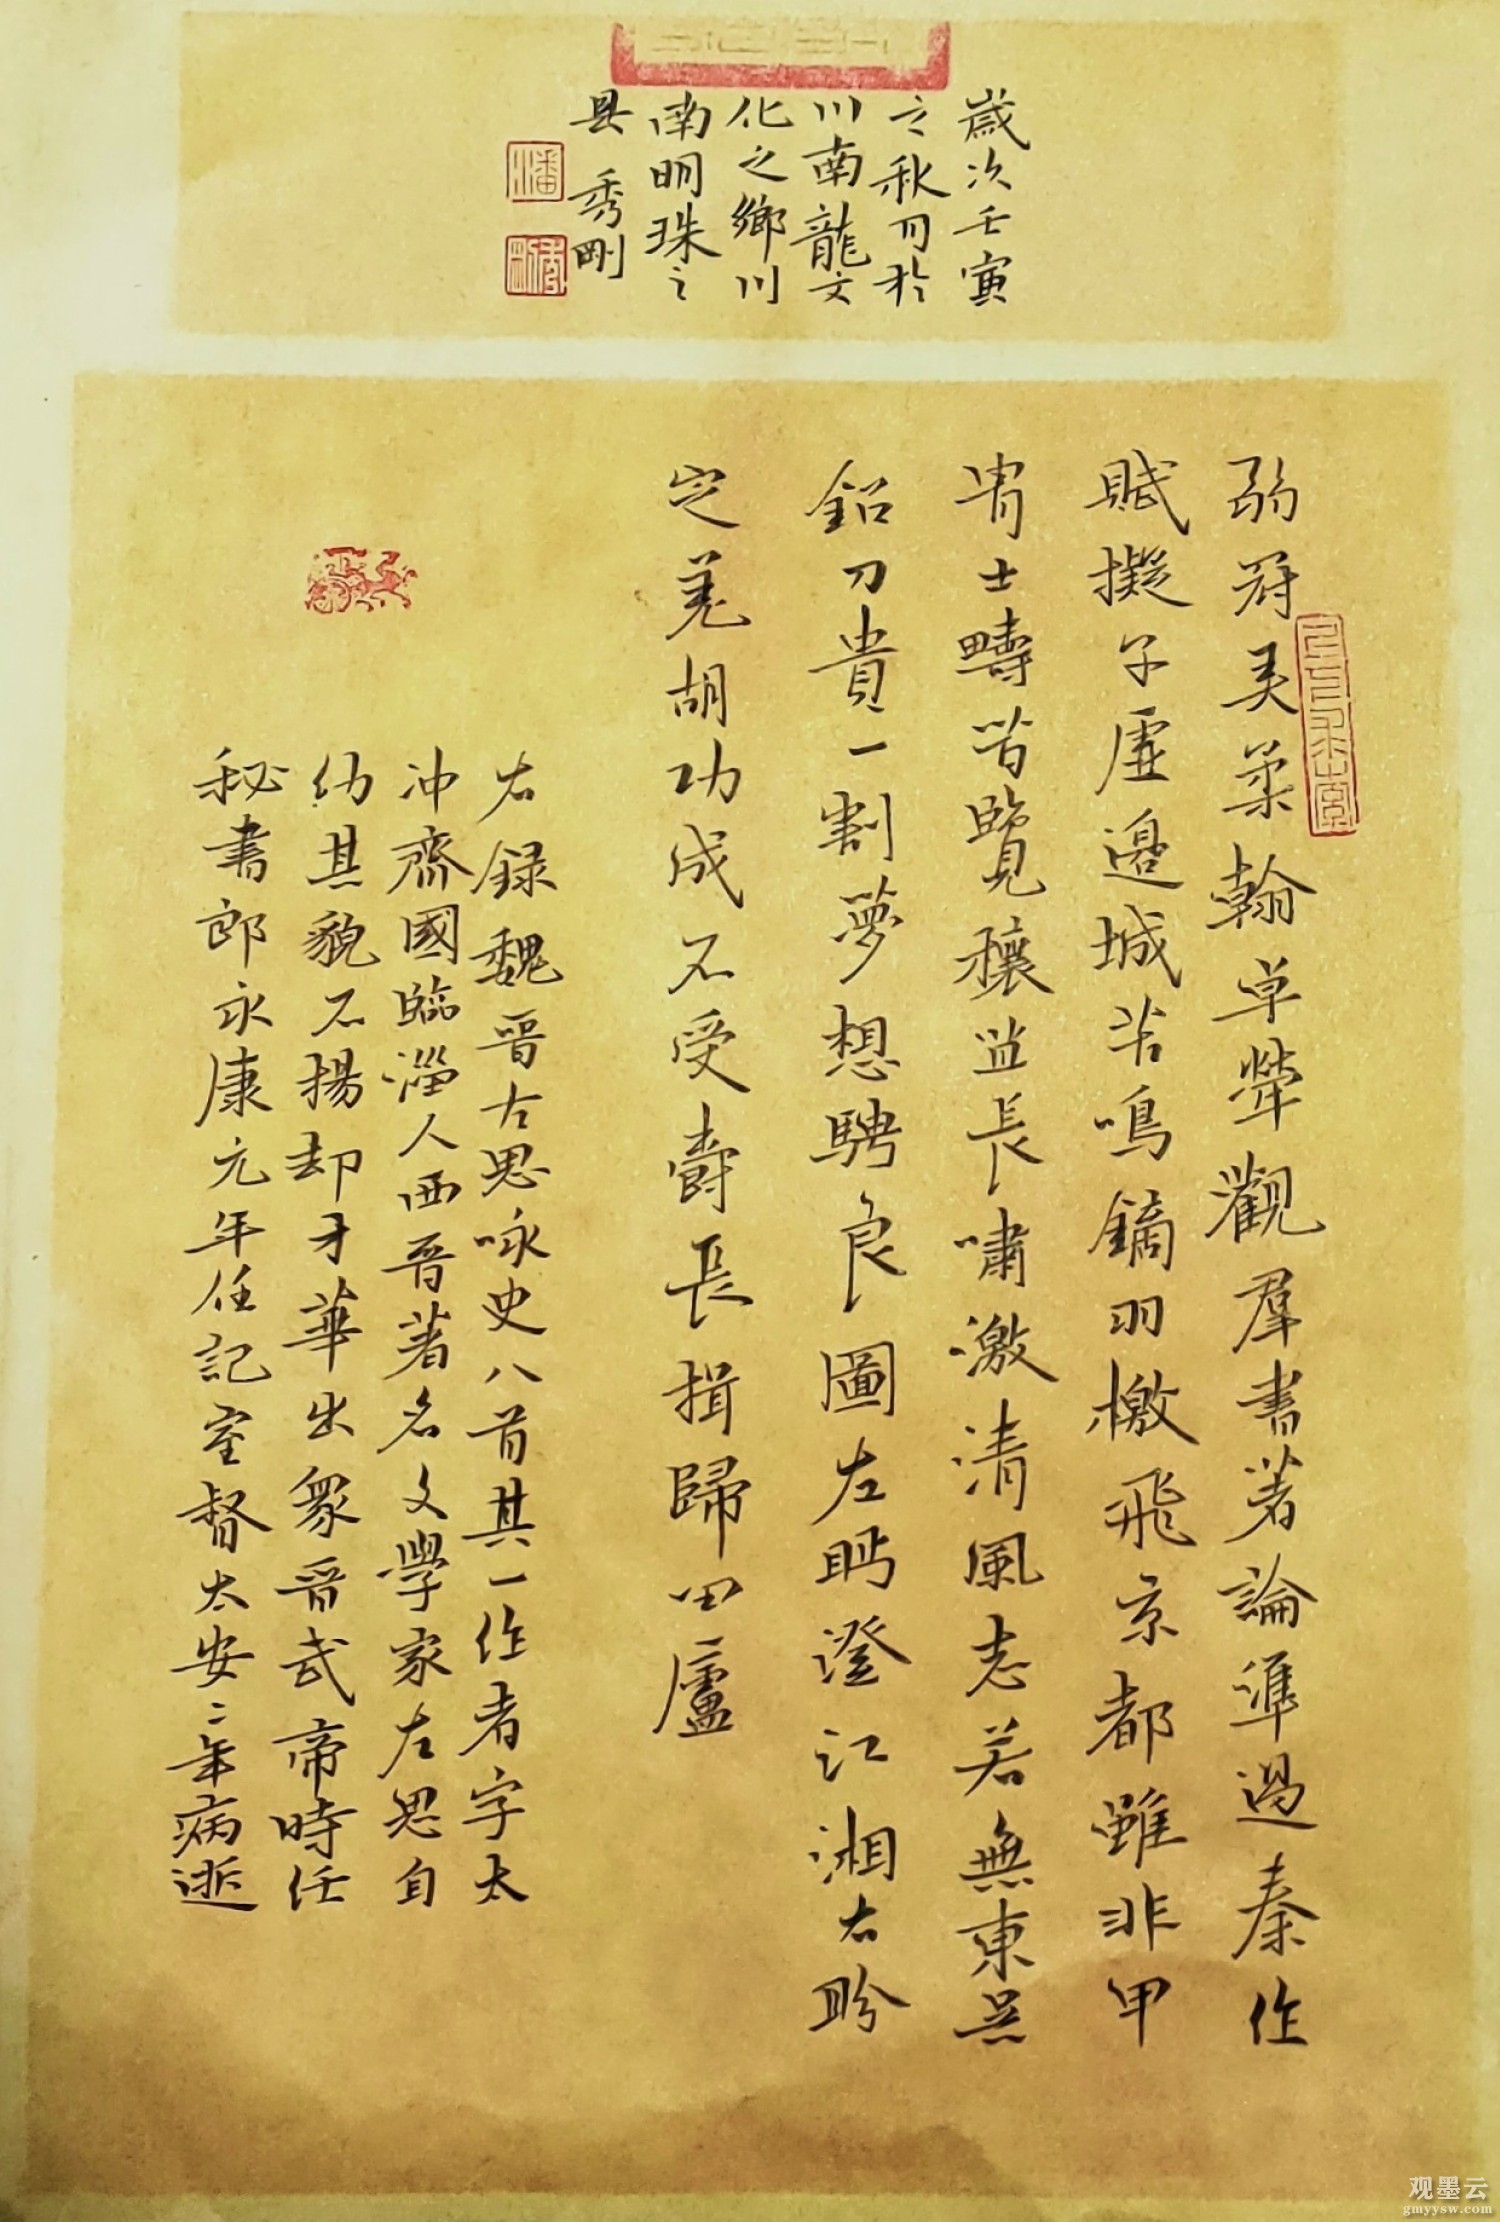 歲次壬寅
之秋月於
川南龍文
化之鄉川
南明珠之
县 秀剛
弱冠弄柔翰卓犖觀羣書著論準過秦作
賦擬子虛邊城苦鳴鏑羽檄飛京都雖非甲
胄士疇昔覽穰苴長嘯激清風志若無東吳
鉛刀貴一割夢想騁良圖左眄澄江湘右盼
定羌胡功成不受爵長揖歸田廬
右録魏晉左思咏史八首其一作者字太
冲齊國臨淄人西晉著名文學家左思自
幼其貌不揚却才華出衆晉武帝時任
秘書郎永康元年任記室督太安二年病逝
观墨云
gmyysw.com